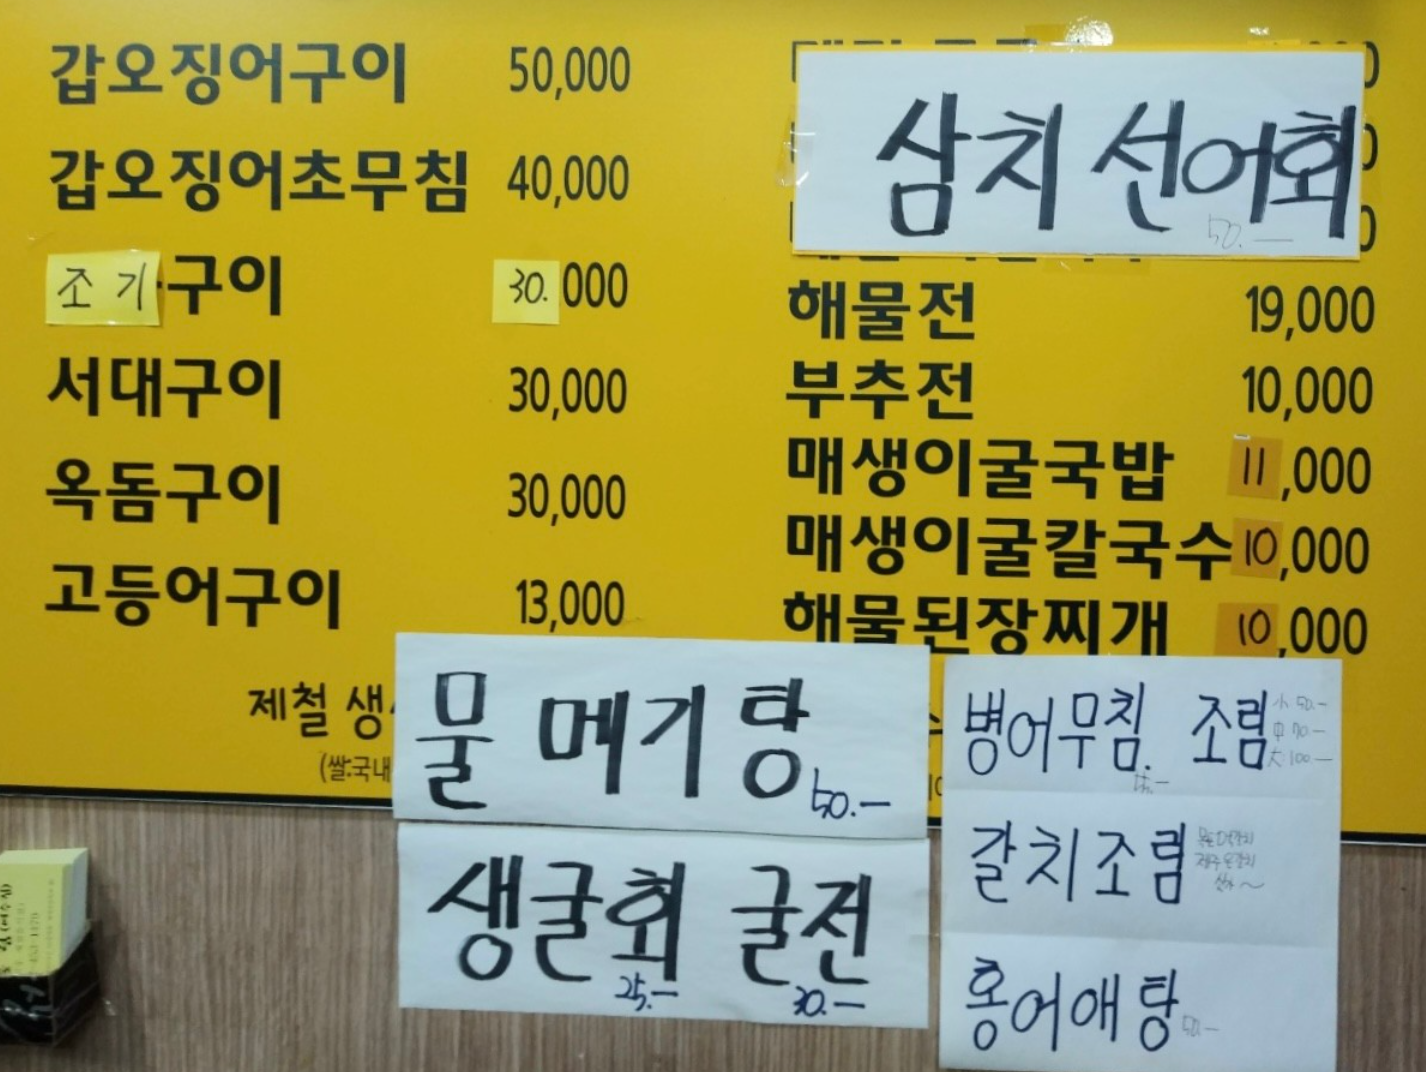 갑오징어구이 50,000
갑오징어초무침 40,000
조기구이 30.000
서대구이 30,000
옥돔구이 30,000
고등어구이 13,000
제철 생
(쌀:국내
삼치 선어회
50.—
해물전 19,000
부추전 10,000
매생이굴국밥 11,000
매생이굴칼국수 10,000
해물된장찌개 10,000
물메기탕
50.—
생굴회 굴전
25.— 30.—
병어무침. 조림
小 50.—
中 70.—
大 100—
갈치조림
홍어애탕
50.—